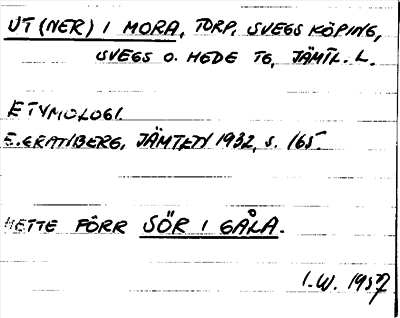 UT(NER) I MORA, TORP, SVEGS KÖPING,
SVEGS O. HEDE TG, JÄMTL. L.
ETYMOLOGI.
E. GRANBERG, JÄMTEN 1932, S. 165.
HETTE FÖRR SÖR I GÅLA.
I.W. 1957